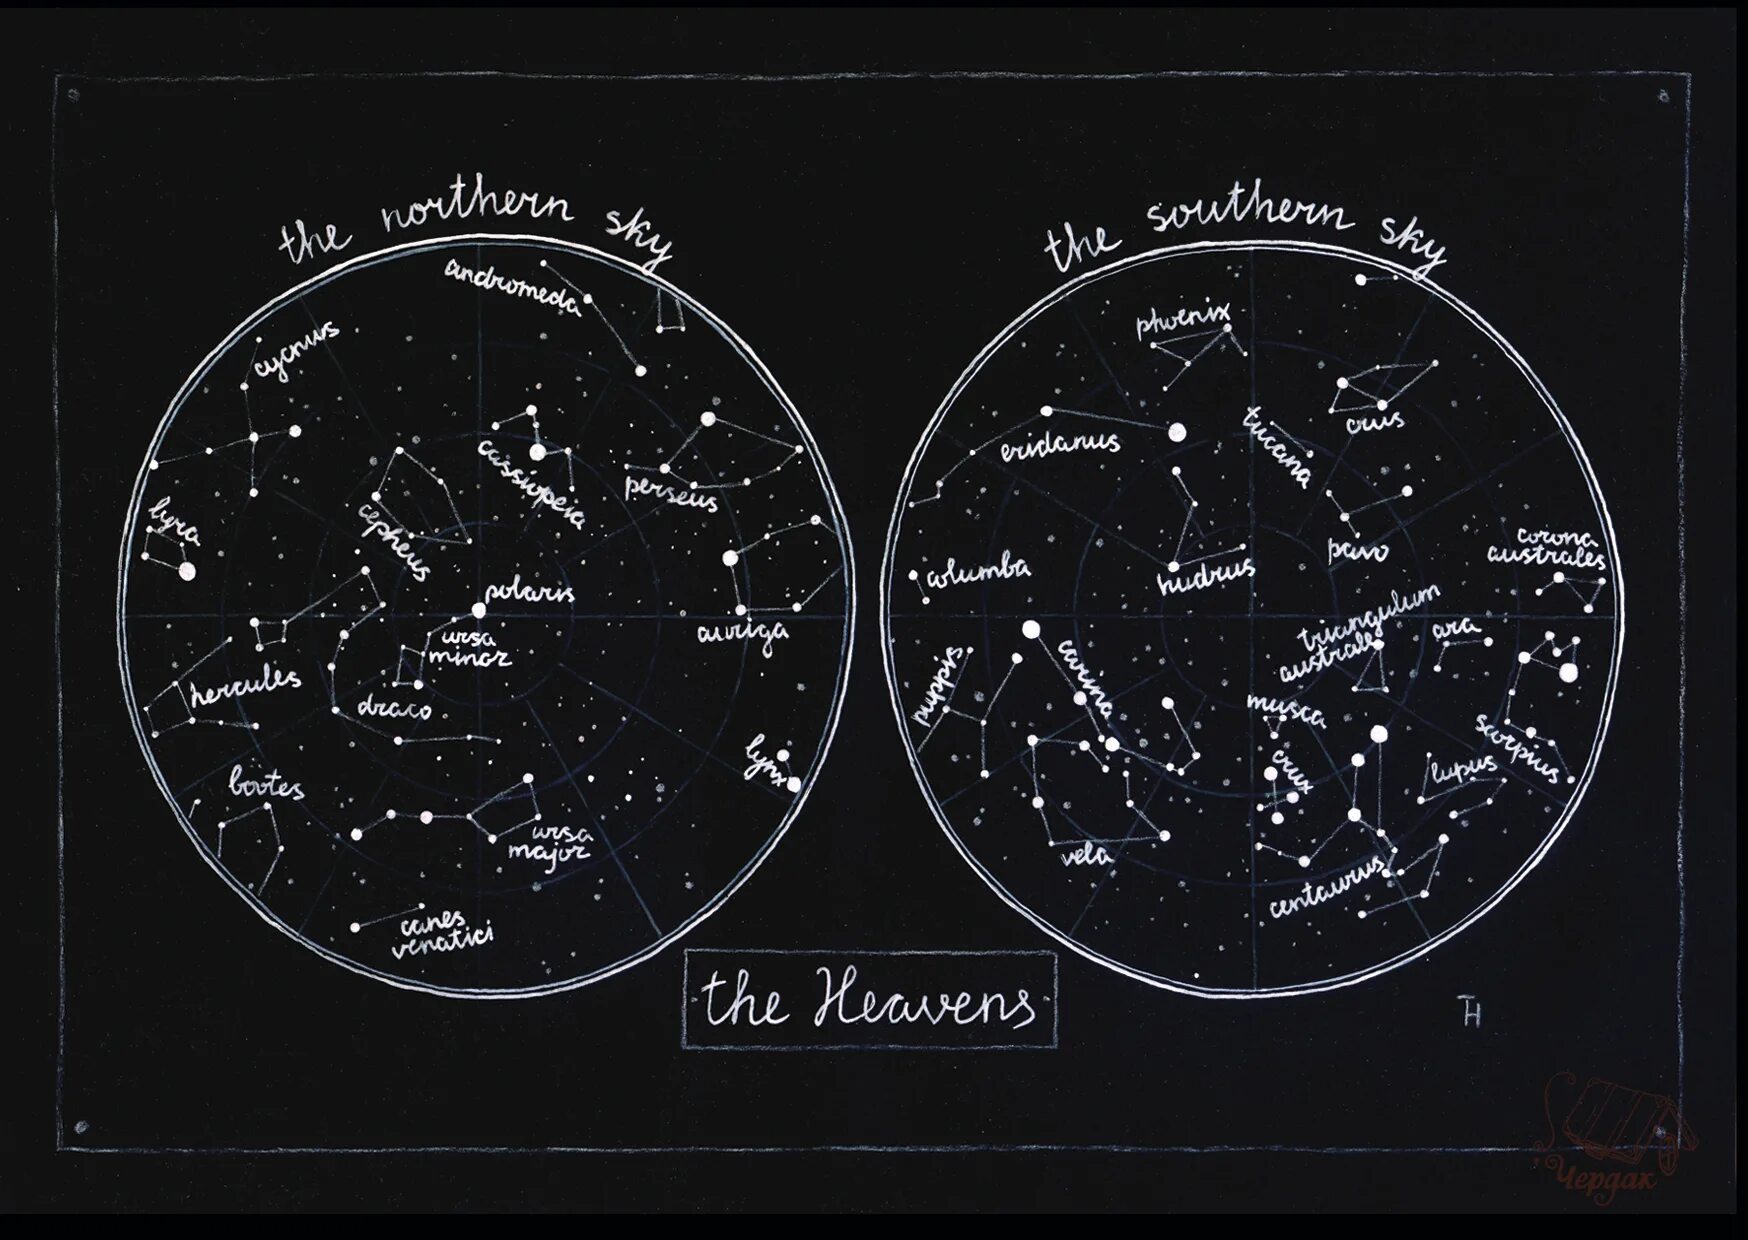 the northern sky
andromeda
cygnus
cassiopeia
perseus
lyra
cepheus
polaris
ursa
minor
auriga
hercules
draco
lynx
bootes
ursa
major
canes
venatici
the southern sky
phoenix
grus
tucana
eridanus
pavo
corona
australes
columba
hudrus
triangulum
australe
ara
puppis
carina
musca
scorpius
crux
lupus
vela
centaurus
the Heavens
TH
Чердак